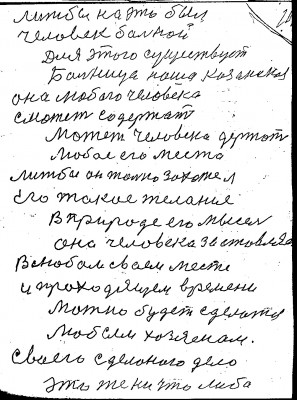 литбы на это был
человек балной
Для этого существует
Балница наша Казанская
она любого человека
сможет содержат
Может человека держат
Любое его место
литбы он толко захотел
Его такое желание
В природе его мысел
она человека заставляе
В любом своем месте
и проходящем времени
Можно будет сделатся
Любсем хозяенам.
своего сделоного дело
Это же ни что либа